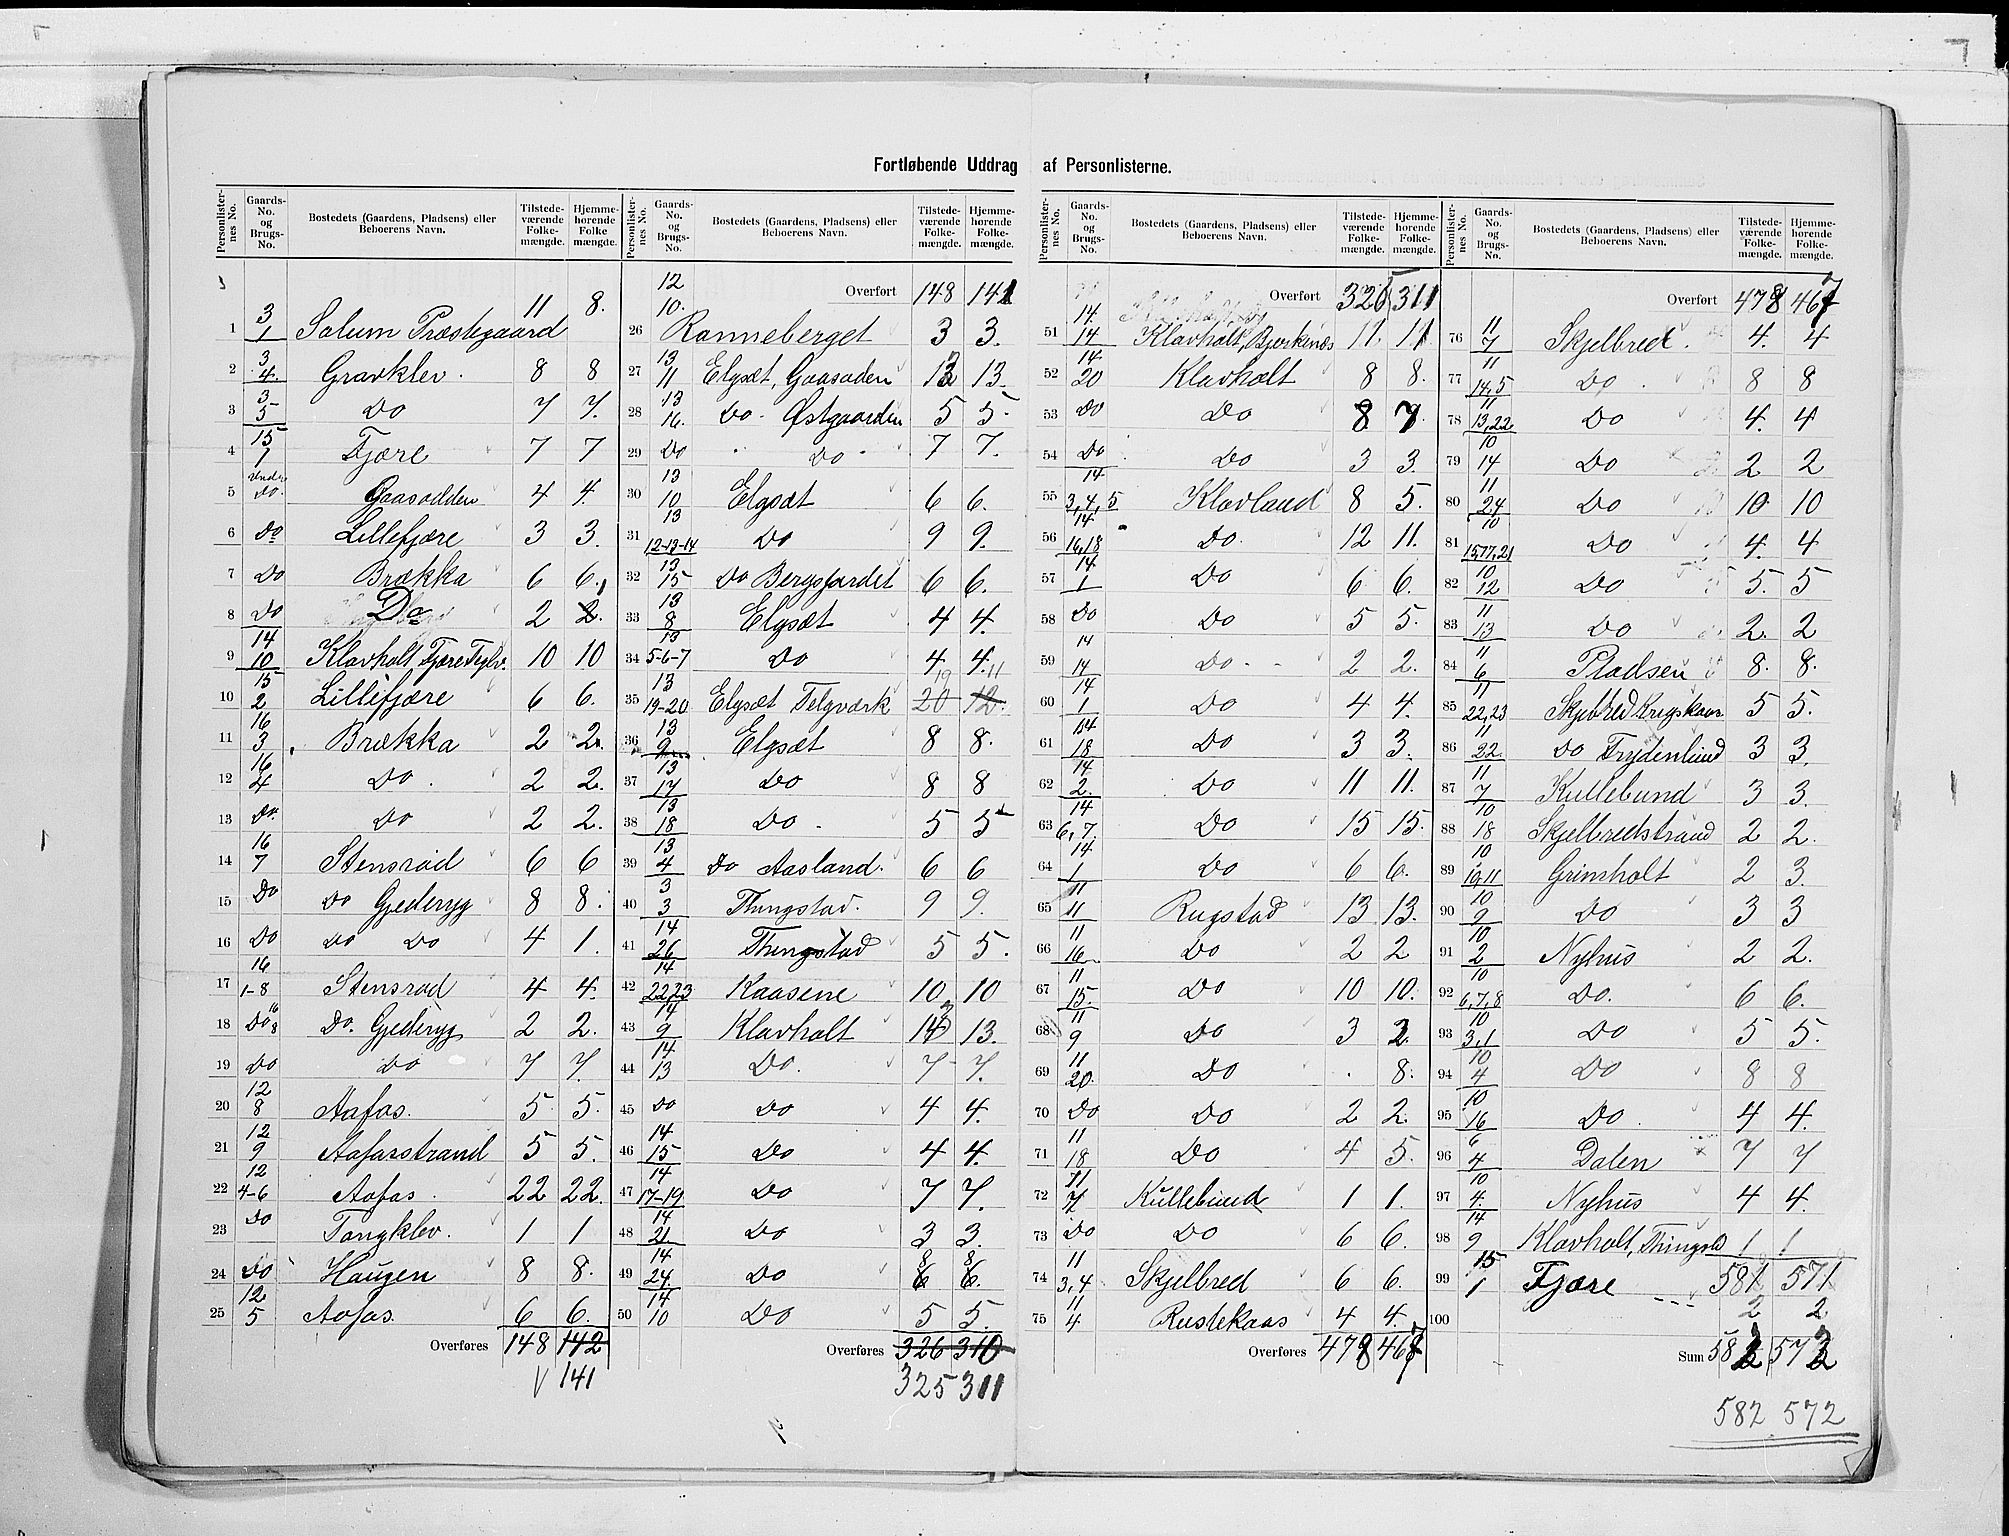 Fortløbende Uddrag af Personlisterne.
Personlister-nes No. Gaards-No. og Brugs-No. Bostedets (Gaardens, Pladsens) eller Beboerens Navn. Tilstede-værende Folke-mængde. Hjemme-hørende Folke-mængde.
1 3/1 Solum Præstegaard 11 8.
2 3/4. Gravklev. 8 8
3 3/5 Do 7 7.
4 15/1 Fjære 7 7
5 Under Do. Gaasodden 4 4.
6 Do Lillefjære 3 3.
7 Do Brækka 6 6.
8 Do Do 2 2.
9 14/10 Klavholt, Fjære Teglv. 10 10
10 15/2 Lillefjære 6 6.
11 16/3 Brækka 2 2.
12 16/4 Do. 2 2.
13 Do. Do 2 2.
14 16/7 Stensrød 6 6
15 Do Do Gjederyg 8 8.
16 Do Do Do 4 1.
17 16/1-8 Stensrød 4 4.
18 Do 16/8 Do. Gjederyg 2 2.
19 Do Do 7 7.
20 12/8 Aafos. 5. 5.
21 12/9 Aafosstrand 5 5.
22 12/4-6 Aafos. 22 22.
23 Do Tangklev. 1 1
24 Do Haugen 8 8.
25 12/5 Aafos. 6 6.
Overføres 148 142
V 141
Personlister-nes No. Gaards-No. og Brugs-No. Bostedets (Gaardens, Pladsens) eller Beboerens Navn. Tilstede-værende Folke-mængde. Hjemme-hørende Folke-mængde.
Overført 148 141
26 12/10. Ranneberget 3 3.
27 13/11 Elgsæt, Gaasodden 13 13.
28 13/16. Do. Østgaarden 5 5.
29 Do Do 7 7.
30 13/10 Elgsæt 6 6.
31 13/12-13-14 Do 9 9.
32 13/15 Do Bergsfjerdet 6 6.
33 13/8 Elgsæt 4 4.
34 13/5-6-7 Do 4 4.
35 13/19-20 Elgsæt Telgværk 20 12. 19 11
36 13/9 Elgsæt 8 8.
37 13/17 Do 8 8
38 13/18 Do. 5 5
39 13/4 Do Aasland. 6 6
40 3/3 Thingstad. 9 9.
41 14/26 Thingstad 5 5.
42 14/22,23 Kaasene 10 10
43 14/9 Klavholt 13 13.
44 14/13 Do. 7 7.
45 Do Do 4 4.
46 14/15 Do 4 4.
47 14/17-19 Do 7 7.
48 14/21 Do 3 3.
49 14/24. Do 6 6. 8 8.
50 14/10 Do 5 5.
Overføres 326 310
325 311
Personlister-nes No. Gaards-No. og Brugs-No. Bostedets (Gaardens, Pladsens) eller Beboerens Navn. Tilstede-værende Folke-mængde. Hjemme-hørende Folke-mængde.
Overført 325 311
51 14/14 Klavholt, Bjerkenæs 11 11
52 14/20 Klavholt 8 8.
53 Do Do 8 7.
54 Do Do 3 3.
55 14/3,4,5 Klavland 8 5.
56 14/16,18 Do. 12 11.
57 14/1 Do 6 6.
58 Do Do 5 5.
59 14/14 Do. 2 2.
60 14/1 Do 4 4.
61 14/18 Do 3 3.
62 14/2. Do 11 11.
63 14/6,7. Do 15 15.
64 14/1 Do 6 6.
65 11/11 Rugstad 13 13.
66 11/16. Do 2 2
67 11/15. Do 10 10.
68 11/9 Do 3 2.
69 11/20. Do . 8.
70 Do Do 2 2.
71 11/18 Do 4 5.
72 11/7 Kullebund 1 1.
73 Do Do 6 6.
74 11/3,4 Skjelbred 6 6.
75 11/4 Rustekaas 4 4.
Overføres 478 467
Personlister-nes No. Gaards-No. og Brugs-No. Bostedets (Gaardens, Pladsens) eller Beboerens Navn. Tilstede-værende Folke-mængde. Hjemme-hørende Folke-mængde.
Overført 478 467
76 11/7 Skjelbred. 4. 4
77 11/14,5 Do. 8 8
78 11/13,22 Do 4. 4
79 10/14 Do 2 2
80 11/24 Do 10 10
81 10/15,17,21 Do 4. 4
82 10/12 Do 5. 5
83 11/13 Do 2. 2
84 11/6 Pladsen 8. 8.
85 11/22,23 Skjelbred Krigskaas 5 5.
86 11/22. Do Frydenlund 3 3.
87 11/7 Kullebund 3 3.
88 10/18 Skjelbredstrand 2 2.
89 10/10,11 Grimholt 2 3.
90 10/9 Do 3 3
91 10/2 Nyhus 2 2.
92 10/6,7,8 Do. 6 6.
93 10/3,1 Do 5 5.
94 10/4 Do 8 8
95 10/16 Do. 4 4.
96 6/4 Dalen 7 7
97 10/4. Nyhus 4 4.
98 14/9 Klavholt, Thingsd 1 1.
99 15/1 Fjære 581 571
100 2 2.
Sum 582 572
582 572